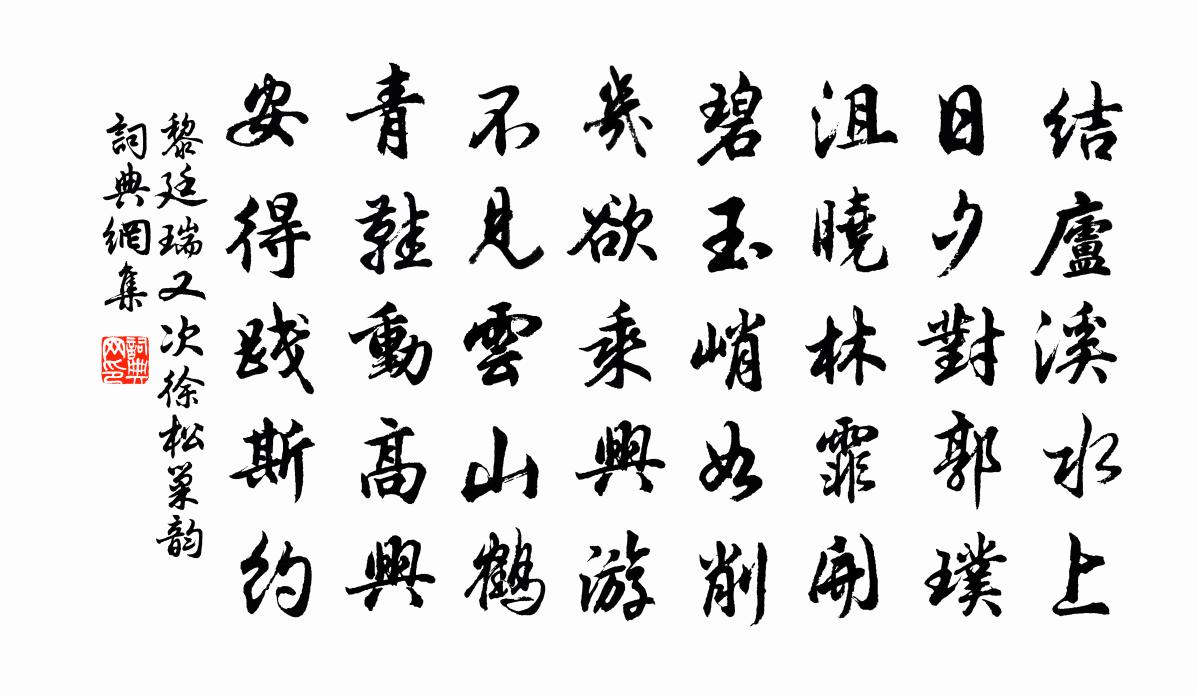 結廬溪水上
日夕對郭璞
沮曉林霏開
碧玉峭如削
幾欲乘興游
不見雲山鶴
青鞋動高興
安得踐斯約
黎廷瑞又次徐松巢韵
詞典網集
詞典網印